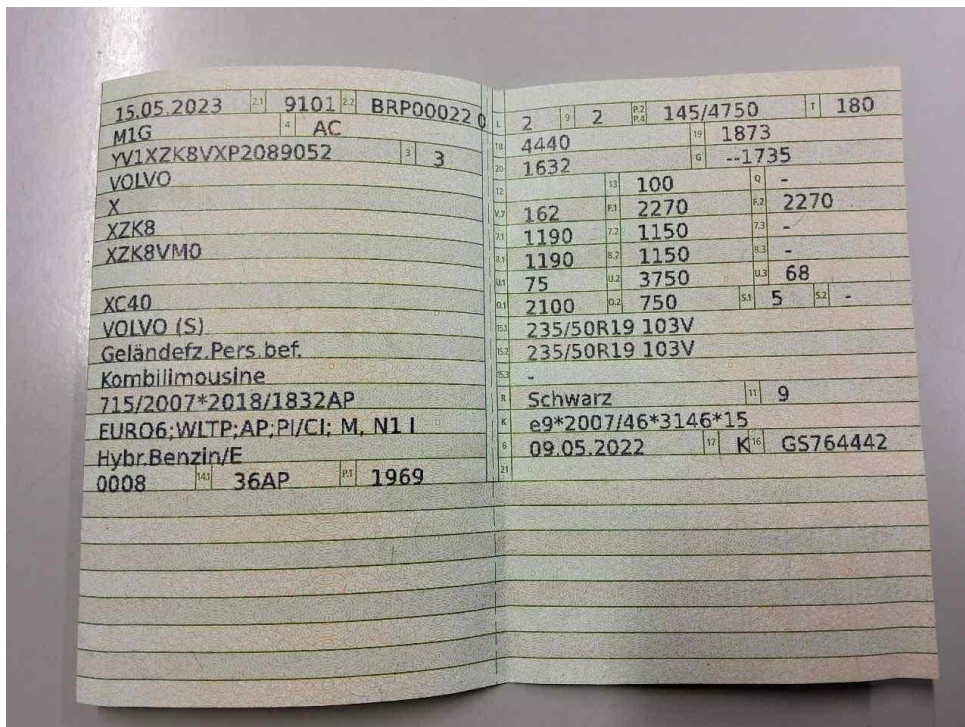 15.05.2023 2.1 9101 2.2 BRP00022 0
M1G 4 AC
YV1XZK8VXP2089052 3 3
VOLVO
X
XZK8
XZK8VM0
XC40
VOLVO (S)
Geländefz.Pers.bef.
Kombilimousine
715/2007*2018/1832AP
EURO6;WLTP;AP;PI/CI; M, N1 I
Hybr.Benzin/E
0008 14.1 36AP P.1 1969
L 2 9 2 P.2 P.4 145/4750 T 180
18 4440 19 1873
20 1632 G --1735
12 13 100 Q -
V.7 162 F.1 2270 F.2 2270
7.1 1190 7.2 1150 7.3 -
8.1 1190 8.2 1150 8.3 -
U.1 75 U.2 3750 U.3 68
O.1 2100 O.2 750 S.1 5 S.2 -
15.1 235/50R19 103V
15.2 235/50R19 103V
15.3 -
R Schwarz 11 9
K e9*2007/46*3146*15
6 09.05.2022 17 K 16 GS764442
21